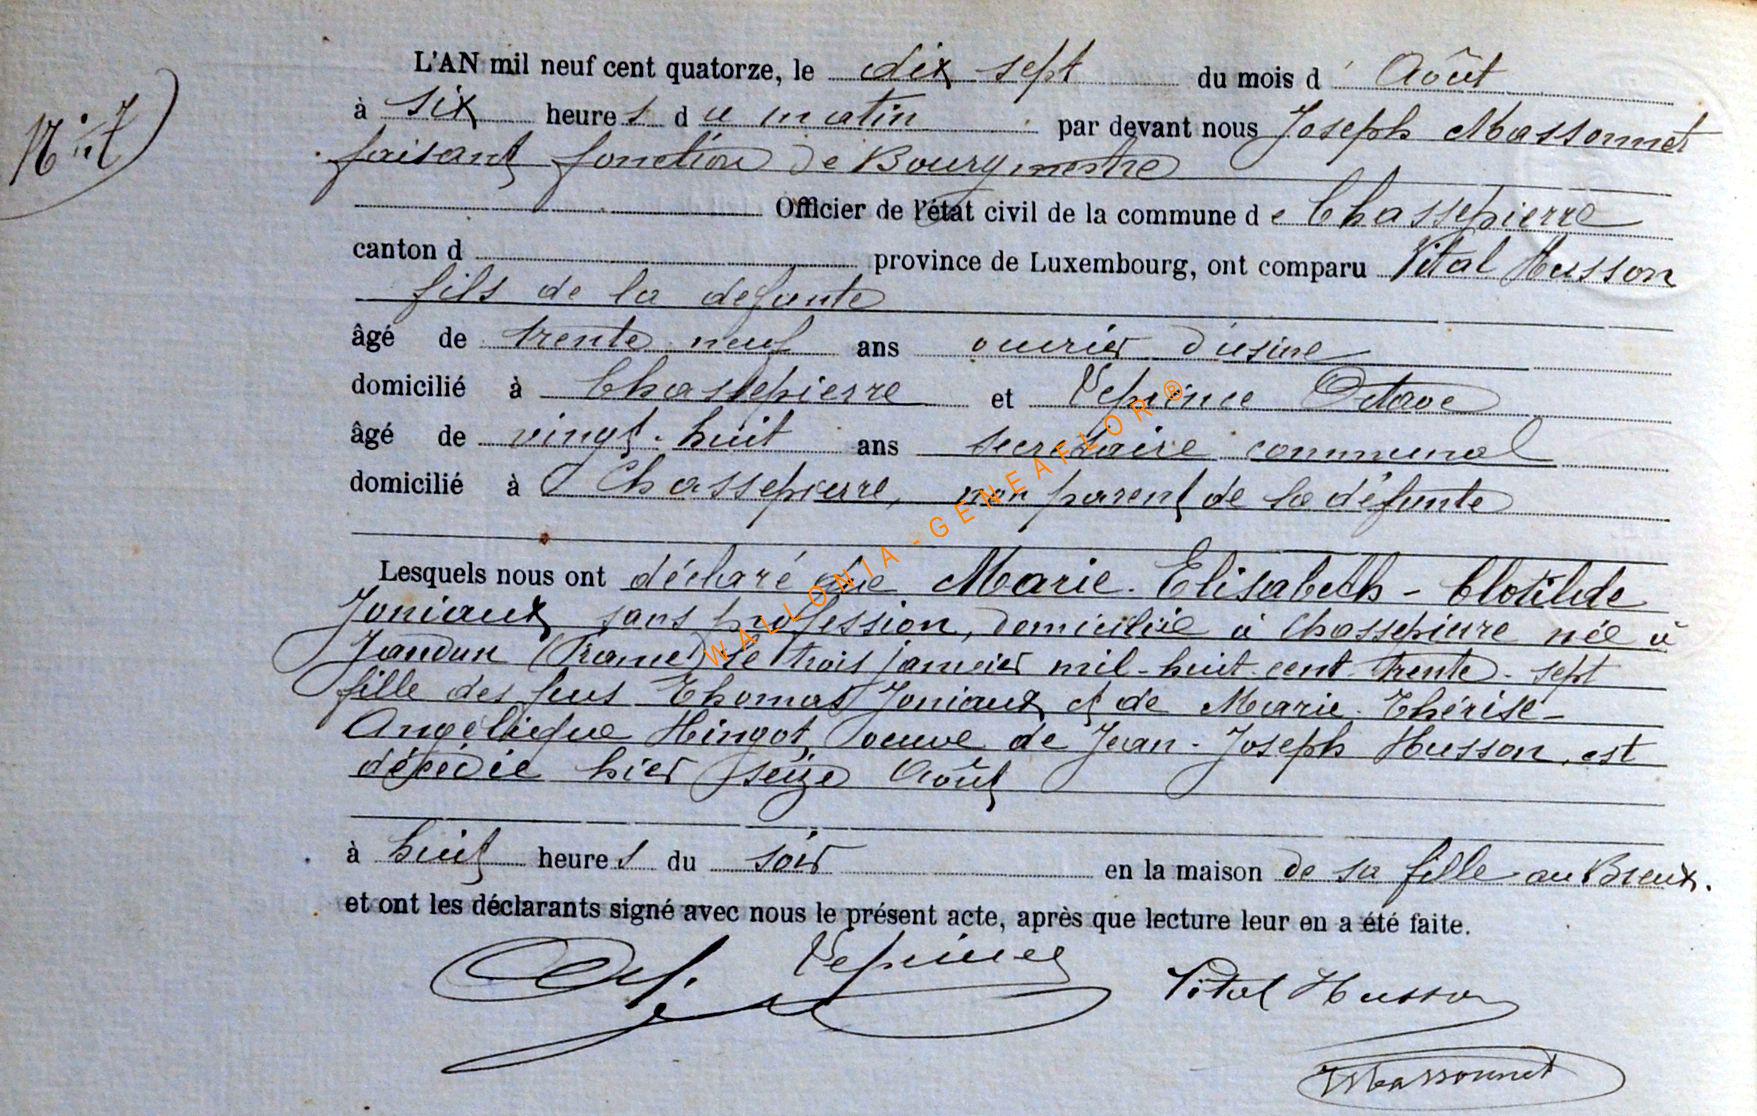 N° 7
L'AN mil neuf cent quatorze, le dix sept du mois d'Août
à six heures du matin par devant nous Joseph Massonnet
faisant fonction de Bourgmestre
Officier de l'état civil de la commune de Chassepierre
canton d province de Luxembourg, ont comparu Vital Husson
fils de la défunte
âgé de trente neuf ans ouvrier d'usine
domicilié à Chassepierre et Octave
âgé de vingt-huit ans secrétaire communal
domicilié à Chassepierre, non parent de la défunte
Lesquels nous ont déclaré que Marie-Elisabeth-Clotilde
Joniaux, sans profession, domiciliée à Chassepierre née à
Jandun (France) le trois janvier mil-huit-cent-trente-sept
fille des feus Thomas Joniaux et de Marie-Thérèse-
Angélique Hingot, veuve de Jean-Joseph Husson, est
décédée hier seize Août
à huit heures du soir en la maison de sa fille au Breux.
et ont les déclarants signé avec nous le présent acte, après que lecture leur en a été faite.
Vital Husson
JMassonnet
WALLONIA - GENEAFLOR®